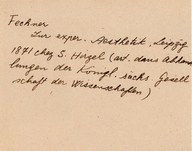 Fechner
Zur exper. Aesthetik, Leipzig
1871 chez S. Hirzel (art. dans Abhand
lungen der Königl. sächs Gesell
schaft der Wissenschaften)